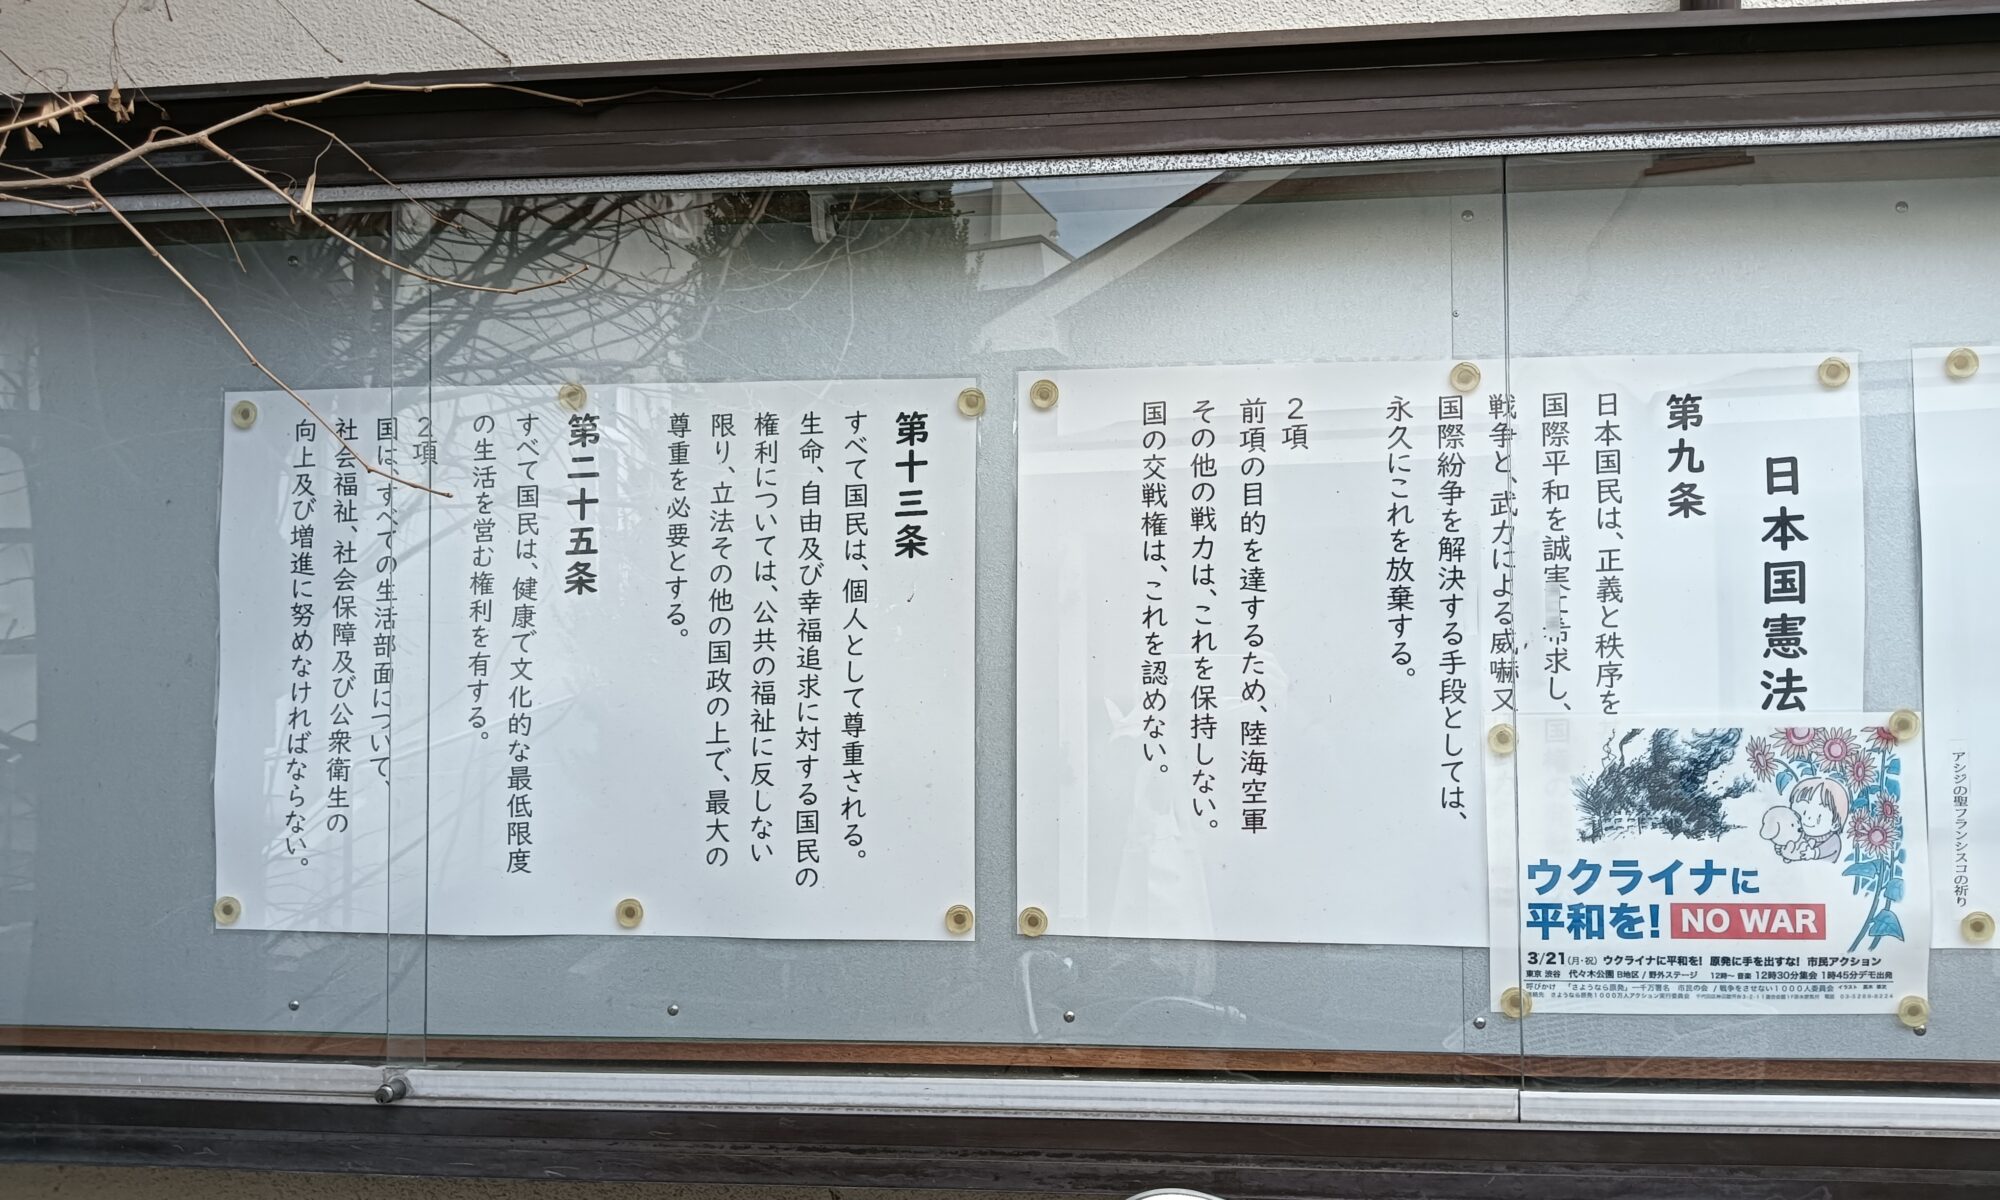 日本国憲法
第九条
日本国民は、正義と秩序を
国際平和を誠実に希求し、国
戦争と、武力による威嚇又
国際紛争を解決する手段としては、
永久にこれを放棄する。
2項
前項の目的を達するため、陸海空軍
その他の戦力は、これを保持しない。
国の交戦権は、これを認めない。
第十三条
すべて国民は、個人として尊重される。
生命、自由及び幸福追求に対する国民の
権利については、公共の福祉に反しない
限り、立法その他の国政の上で、最大の
尊重を必要とする。
第二十五条
すべて国民は、健康で文化的な最低限度
の生活を営む権利を有する。
2項
国は、すべての生活部面について、
社会福祉、社会保障及び公衆衛生の
向上及び増進に努めなければならない。
アシジの聖フランシスコの祈り
ウクライナに
平和を! NO WAR
3/21(月・祝) ウクライナに平和を! 原発に手を出すな! 市民アクション
東京 渋谷 代々木公園 B地区/野外ステージ 12時〜 音楽 12時30分集会 1時45分デモ出発
呼びかけ 「さようなら原発」一千万署名 市民の会/戦争をさせない1000人委員会 イラスト
連絡先 さようなら原発1000万人アクション実行委員会 千代田区神田駿河台3-2-11連合会館1F原水禁気付 電話 03-5289-8224